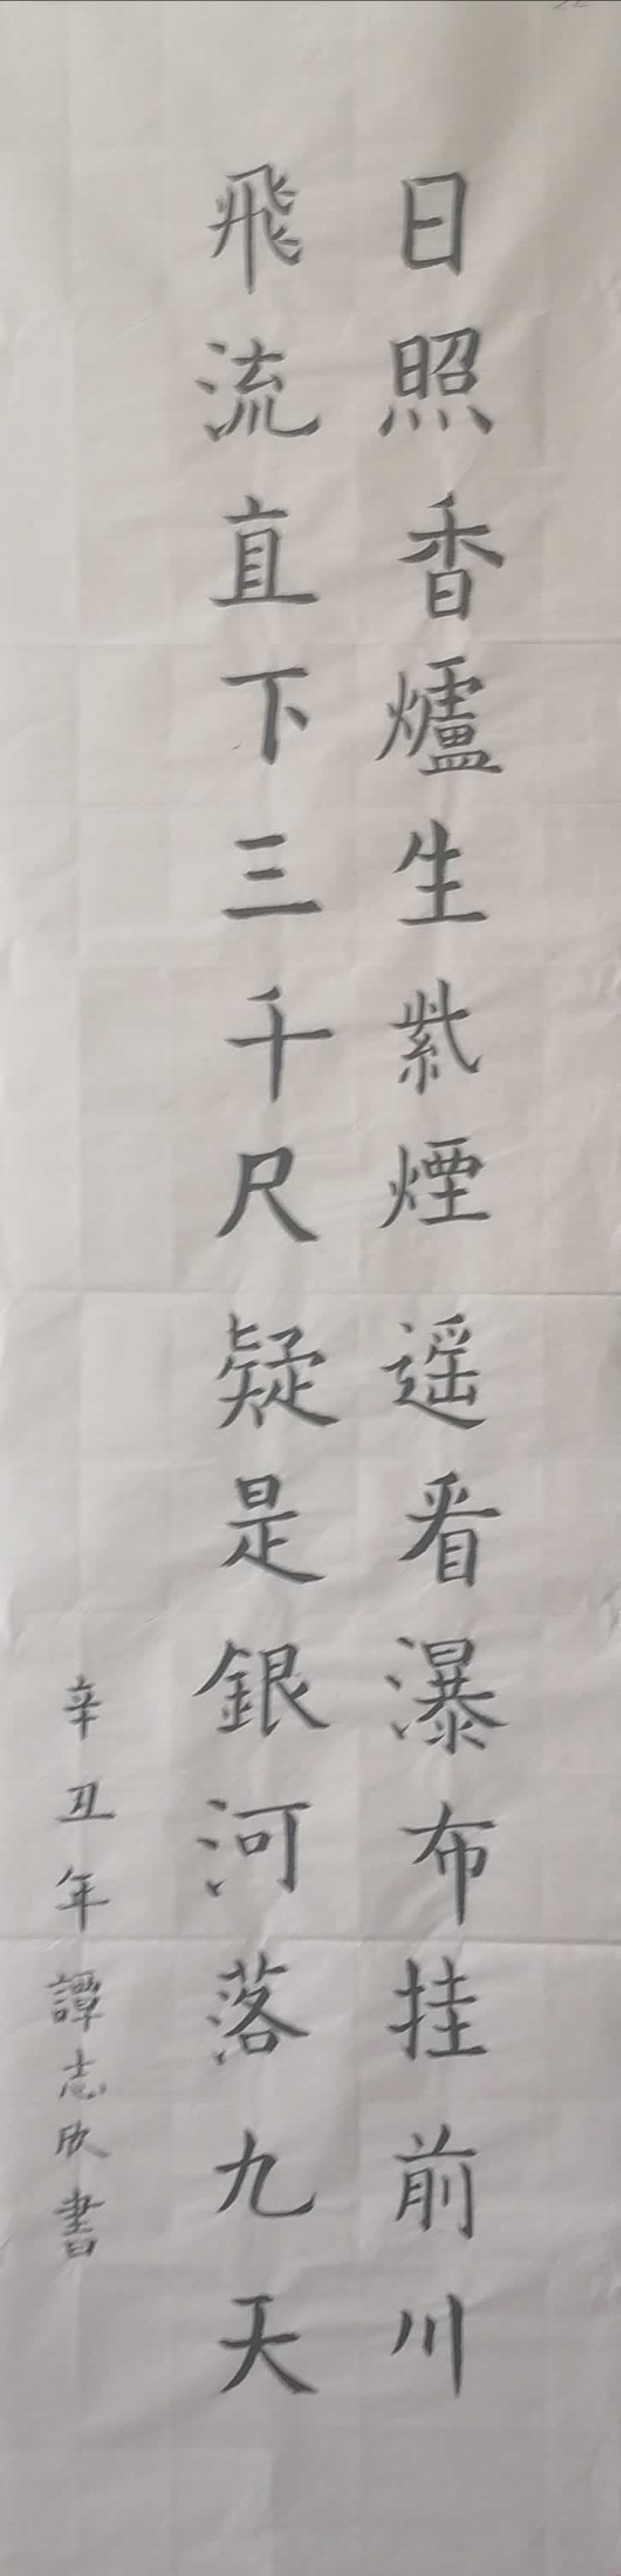 日照香爐生紫煙遥看瀑布挂前川
飛流直下三千尺疑是銀河落九天
辛丑年譚志欣書